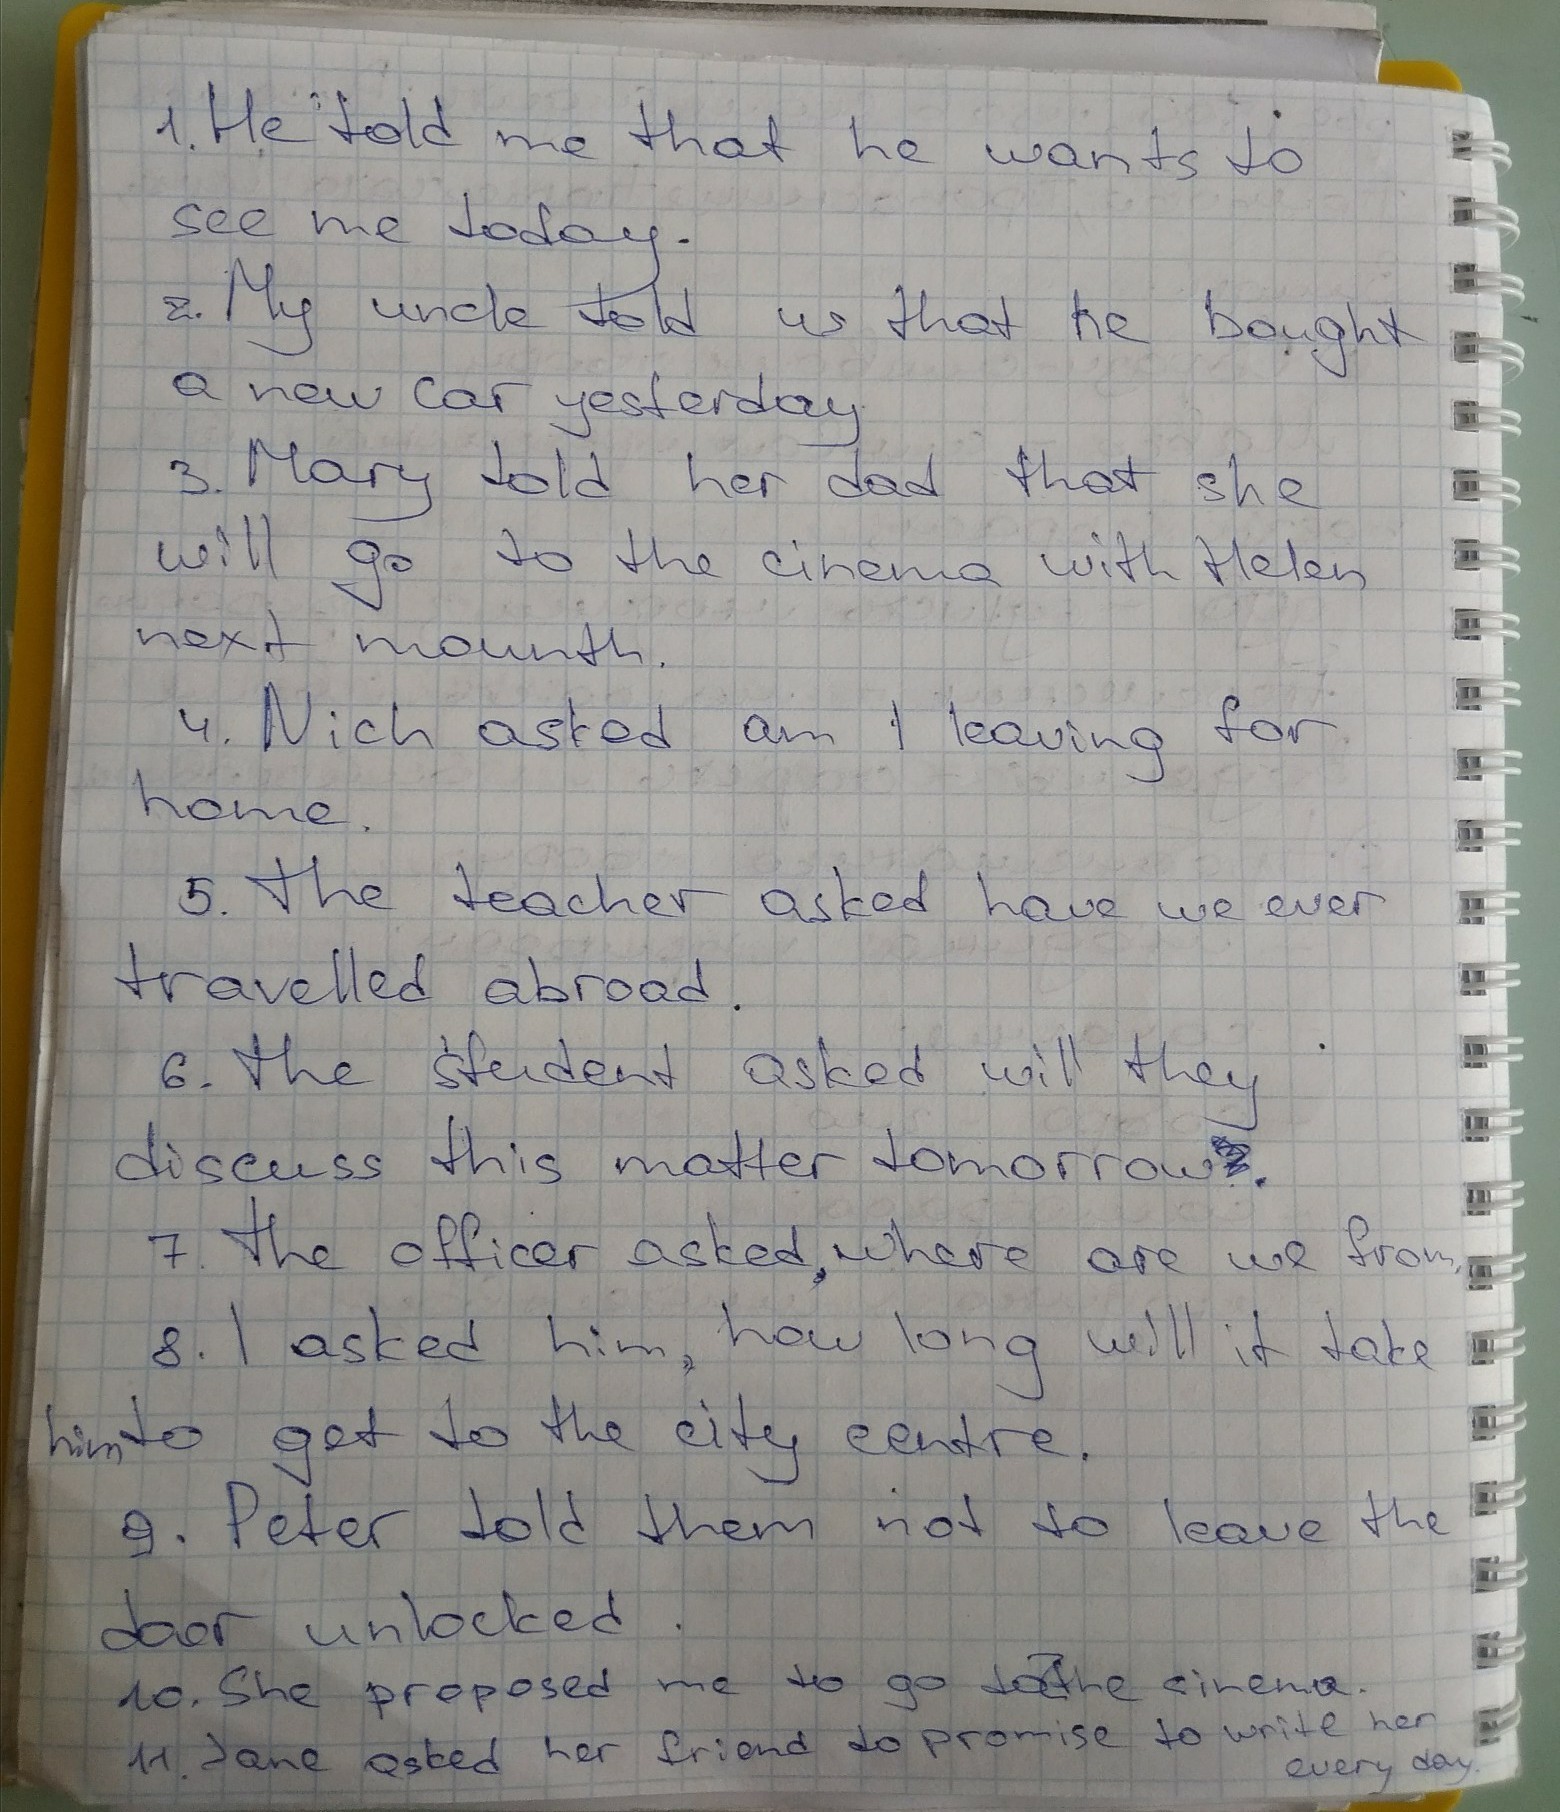 1. He told me that he wants to
see me today.
2. My uncle told us that he bought
a new car yesterday
3. Mary told her dad that she
will go to the cinema with Helen
next mounth.
4. Nich asked am I leaving for
home.
5. The teacher asked have we ever
travelled abroad.
6. The student asked will they
discuss this matter tomorrow.
7. The officer asked, where are we from.
8. I asked him, how long will it take
him to get to the city centre.
9. Peter told them not to leave the
door unlocked.
10. She proposed me to go to the cinema.
11. Jane asked her friend to promise to write her
every day.